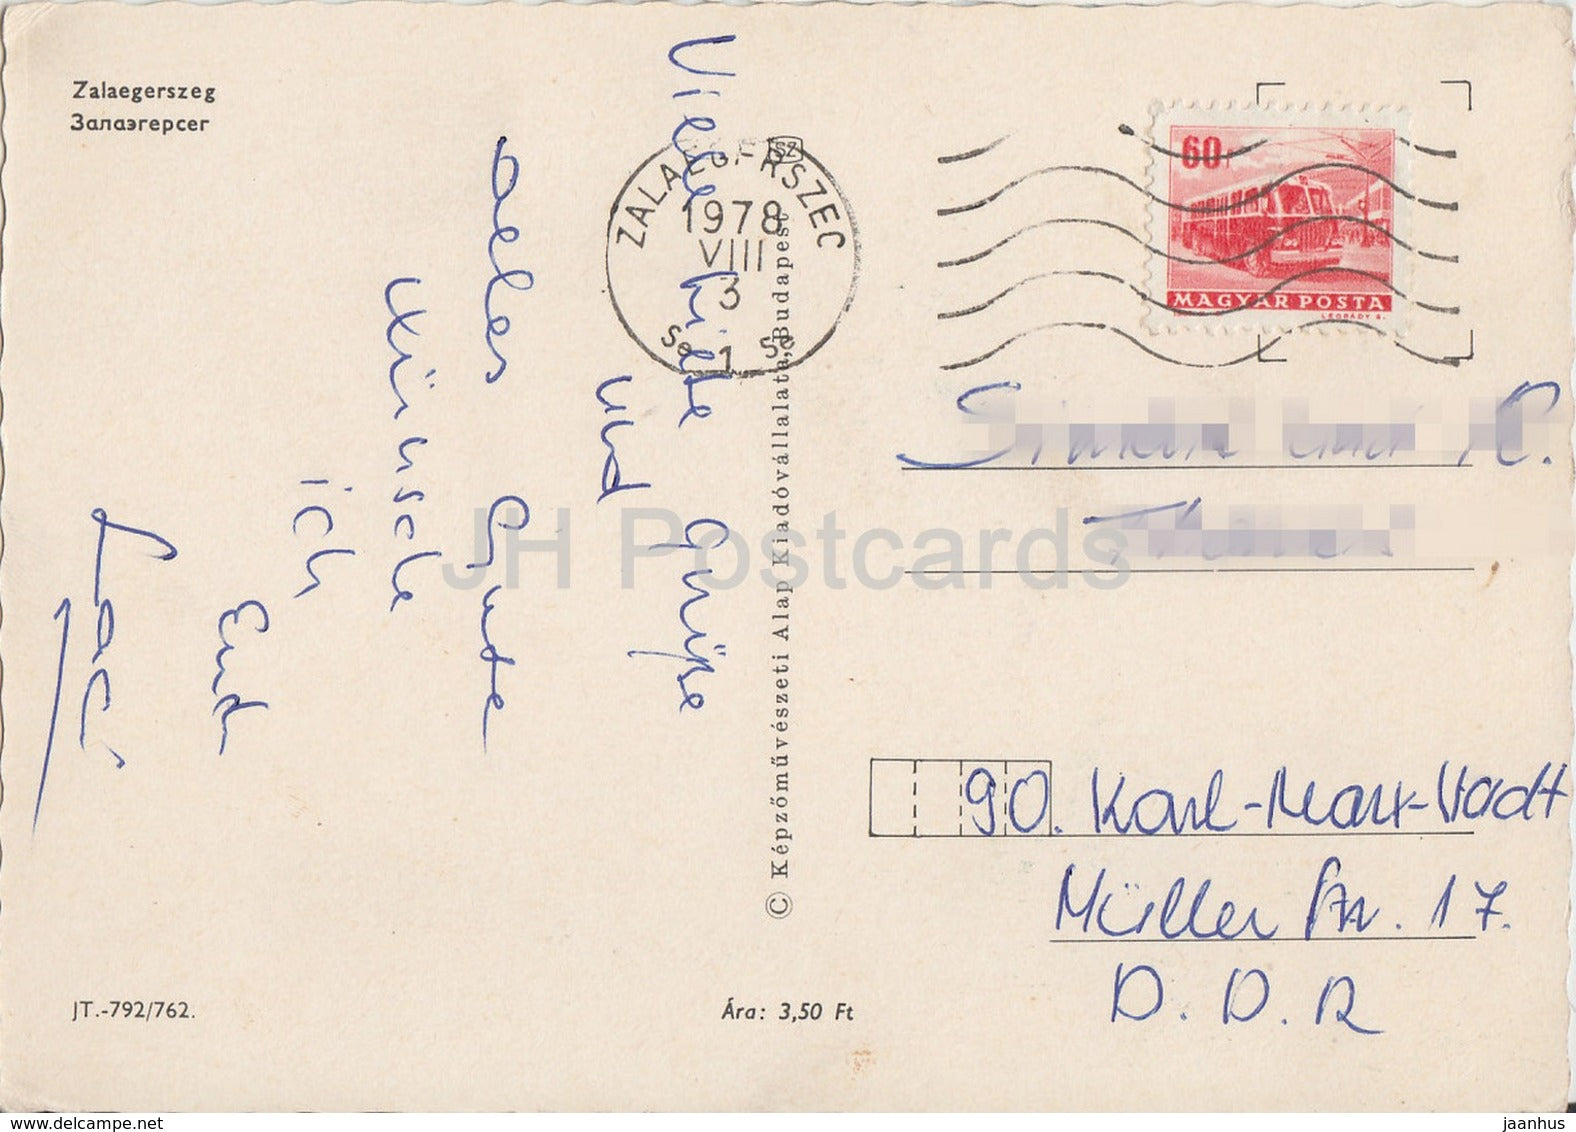 Zalaegerszeg
Залаэгерсег
Viele liebe Grüße
und
alles Gute
wünsche
ich
Euch
Laci
ZALAEGERSZEG
SZ
1978
VIII
3
1
60f
MAGYAR POSTA
LÉGRÁDY S.
© Képzőművészeti Alap Kiadóvállalata, Budapest
und
90. Karl-Marx-Stadt
Müller Str. 17.
D. D. R
JT.-792/762.
Ára: 3,50 Ft
JH Postcards
www.delcampe.net
jaanhus